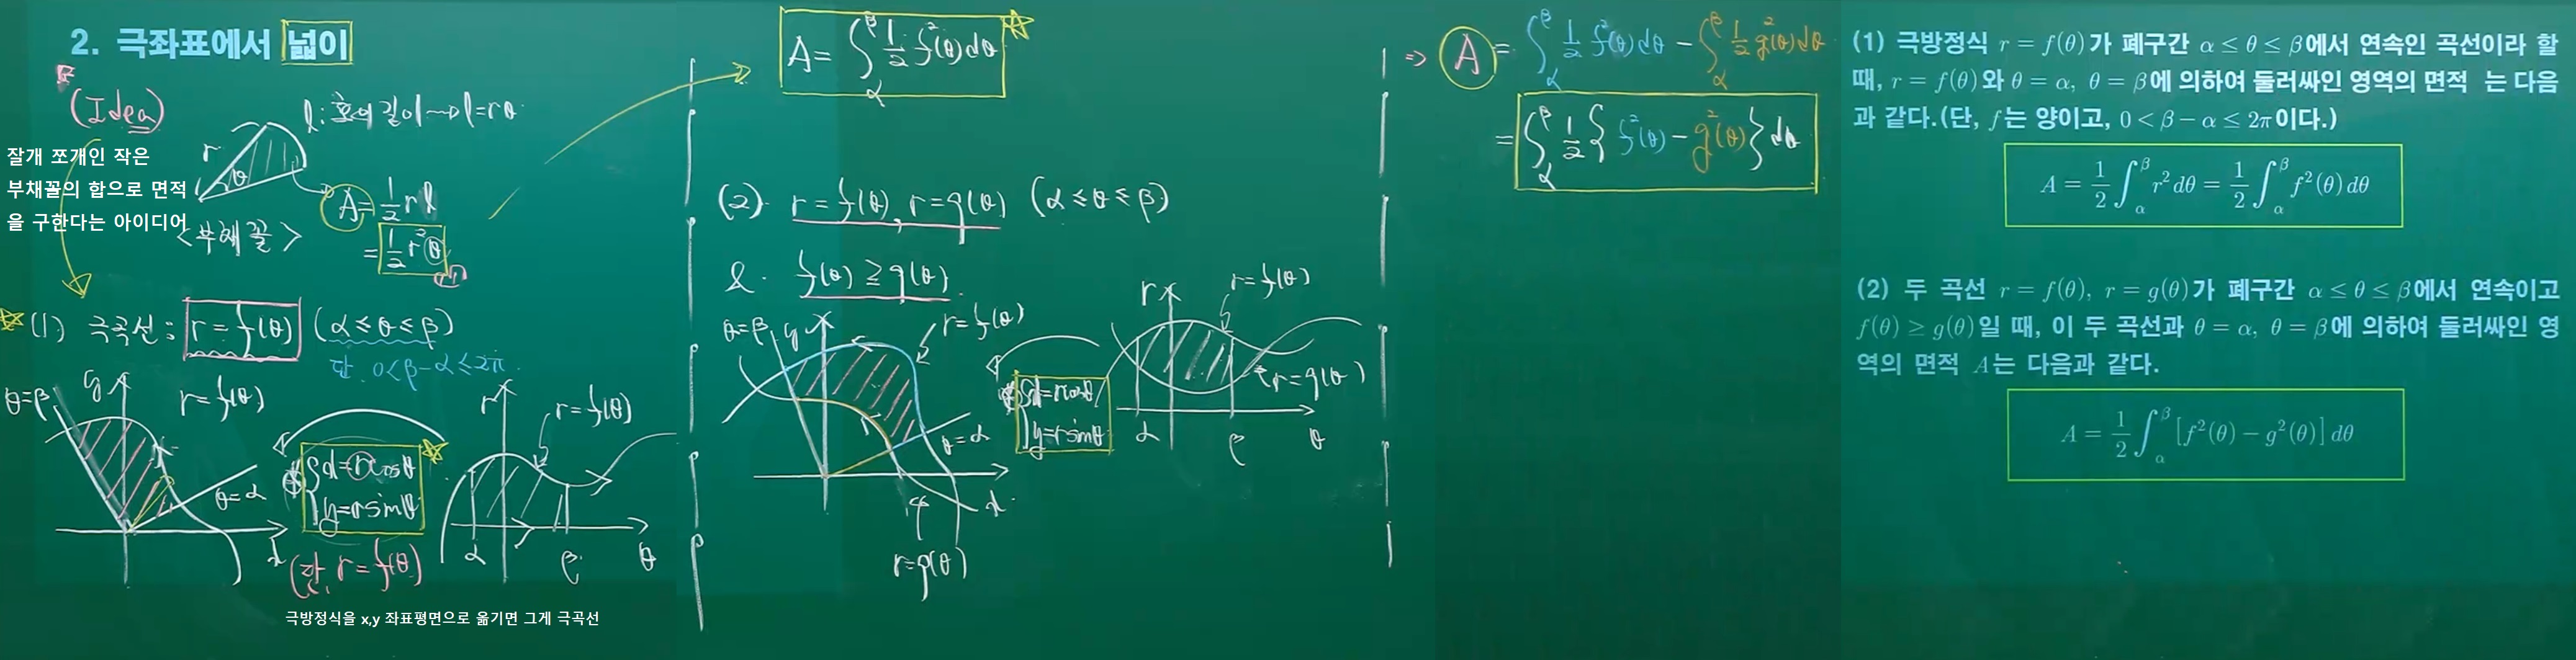 2. 극좌표에서 넓이
(Idea)
잘개 쪼개인 작은
부채꼴의 합으로 면적
을 구한다는 아이디어
l : 호의 길이 → l = rθ
r
θ
<부채꼴>
A = 1/2 r l
= 1/2 r²θ
(1) 극곡선 : r = f(θ) (α ≤ θ ≤ β)
단, 0 < β - α ≤ 2π.
θ = β
y
r = f(θ)
θ = α
x
x = r cosθ
y = r sinθ
(단, r = f(θ))
r
r = f(θ)
α
β
θ
극방정식을 x,y 좌표평면으로 옮기면 그게 극곡선
A = ∫_α^β 1/2 f²(θ) dθ
(2) r = f(θ), r = g(θ) (α ≤ θ ≤ β)
&. f(θ) ≥ g(θ).
θ = β
y
r = f(θ)
θ = α
x
r = g(θ)
x = r cosθ
y = r sinθ
r
r = f(θ)
r = g(θ)
α
β
θ
⇒ A = ∫_α^β 1/2 f²(θ) dθ - ∫_α^β 1/2 g²(θ) dθ
= ∫_α^β 1/2 { f²(θ) - g²(θ) } dθ
(1) 극방정식 r = f(θ)가 폐구간 α ≤ θ ≤ β에서 연속인 곡선이라 할
때, r = f(θ)와 θ = α, θ = β에 의하여 둘러싸인 영역의 면적 는 다음
과 같다.(단, f는 양이고, 0 < β - α ≤ 2π이다.)
A = 1/2 ∫_α^β r² dθ = 1/2 ∫_α^β f²(θ) dθ
(2) 두 곡선 r = f(θ), r = g(θ)가 폐구간 α ≤ θ ≤ β에서 연속이고
f(θ) ≥ g(θ)일 때, 이 두 곡선과 θ = α, θ = β에 의하여 둘러싸인 영
역의 면적 A는 다음과 같다.
A = 1/2 ∫_α^β [f²(θ) - g²(θ)] dθ